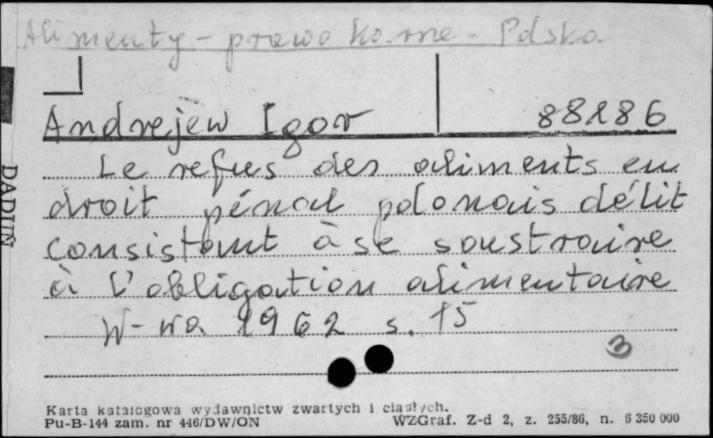 Alimenty - prawo karne - Polska
Andrejew Igor 88186
Le refus des aliments en
droit pénal polonais délit
consistant à se soustraire
à l'obligation alimentaire
W-wa 1962 s. 15
3
DADUN
Karta katalogowa wydawnictw zwartych i ciągłych.
Pu-B-144 zam. nr 446/DW/ON WZGraf. Z-d 2, z. 255/86, n. 6 350 000